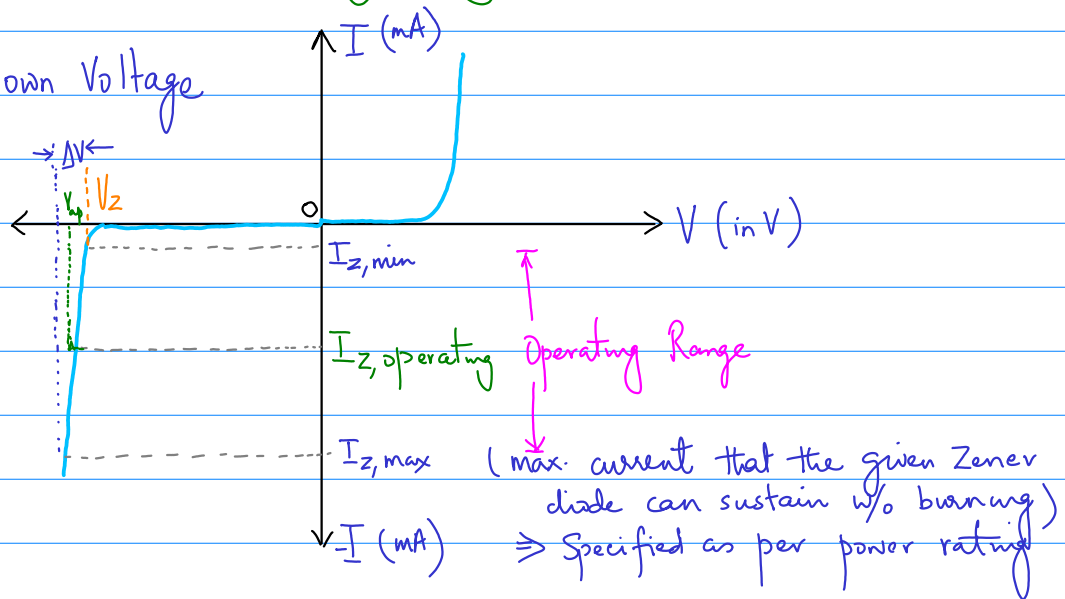 I (mA)
own Voltage
ΔV
Vz
Vop
O
V (in V)
Iz,min
Iz,operating
Operating Range
Iz,max (max. current that the given Zener
diode can sustain w/o burning)
-I (mA) ⇒ Specified as per power rating